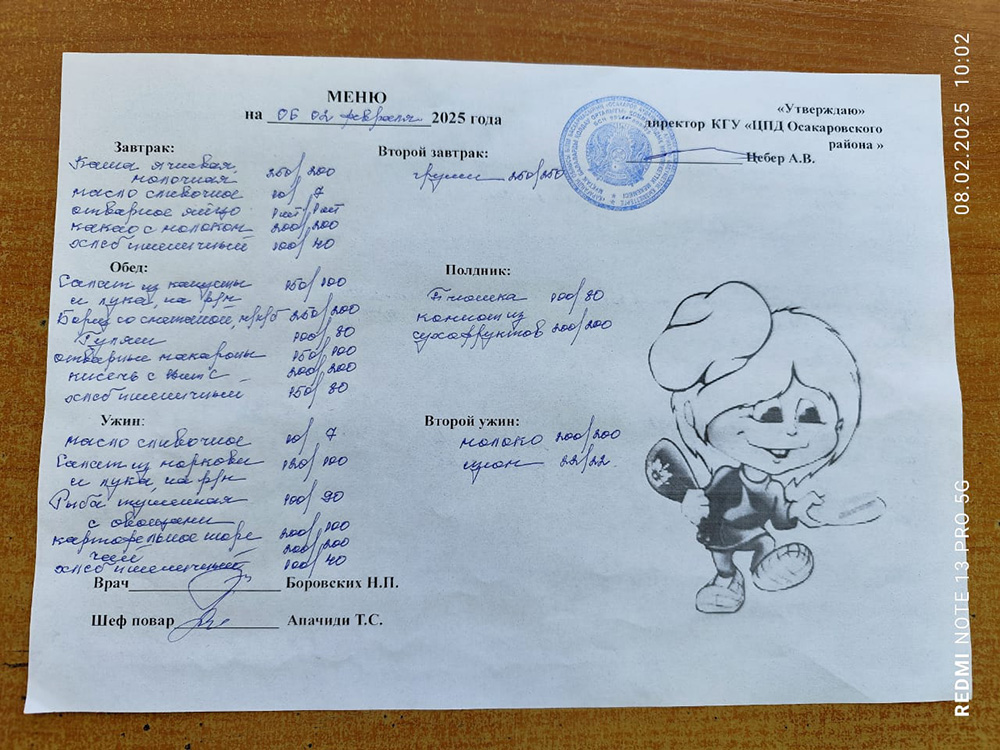 МЕНЮ
на 06 02 февраля 2025 года
«Утверждаю»
директор КГУ «ЦПД Осакаровского
района»
Цебер А.В.
Завтрак:
Каша ячневая,
молочная 250/200
масло сливочное 10/7
отварное яйцо 1шт/1шт
какао с молоком 200/200
хлеб пшеничный 100/40
Второй завтрак:
груши 250/250
Обед:
Салат из капусты 150/100
и лука, на р/м
Борщ со сметаной, 250/200
Гуляш 100/80
отварные макароны 150/100
кисель с вит С 200/200
хлеб пшеничный 150/80
Полдник:
Плюшка 100/80
компот из
сухофруктов 200/200
Ужин:
масло сливочное 10/7
Салат из моркови 120/100
и лука, на р/м
Рыба тушенная 100/90
с овощами
картофельное пюре 200/100
чай 200/200
хлеб пшеничный 100/40
Второй ужин:
молоко 200/200
22/22
Врач Боровских Н.П.
Шеф повар Апачиди Т.С.
REDMI NOTE 13 PRO 5G
08.02.2025 10:02